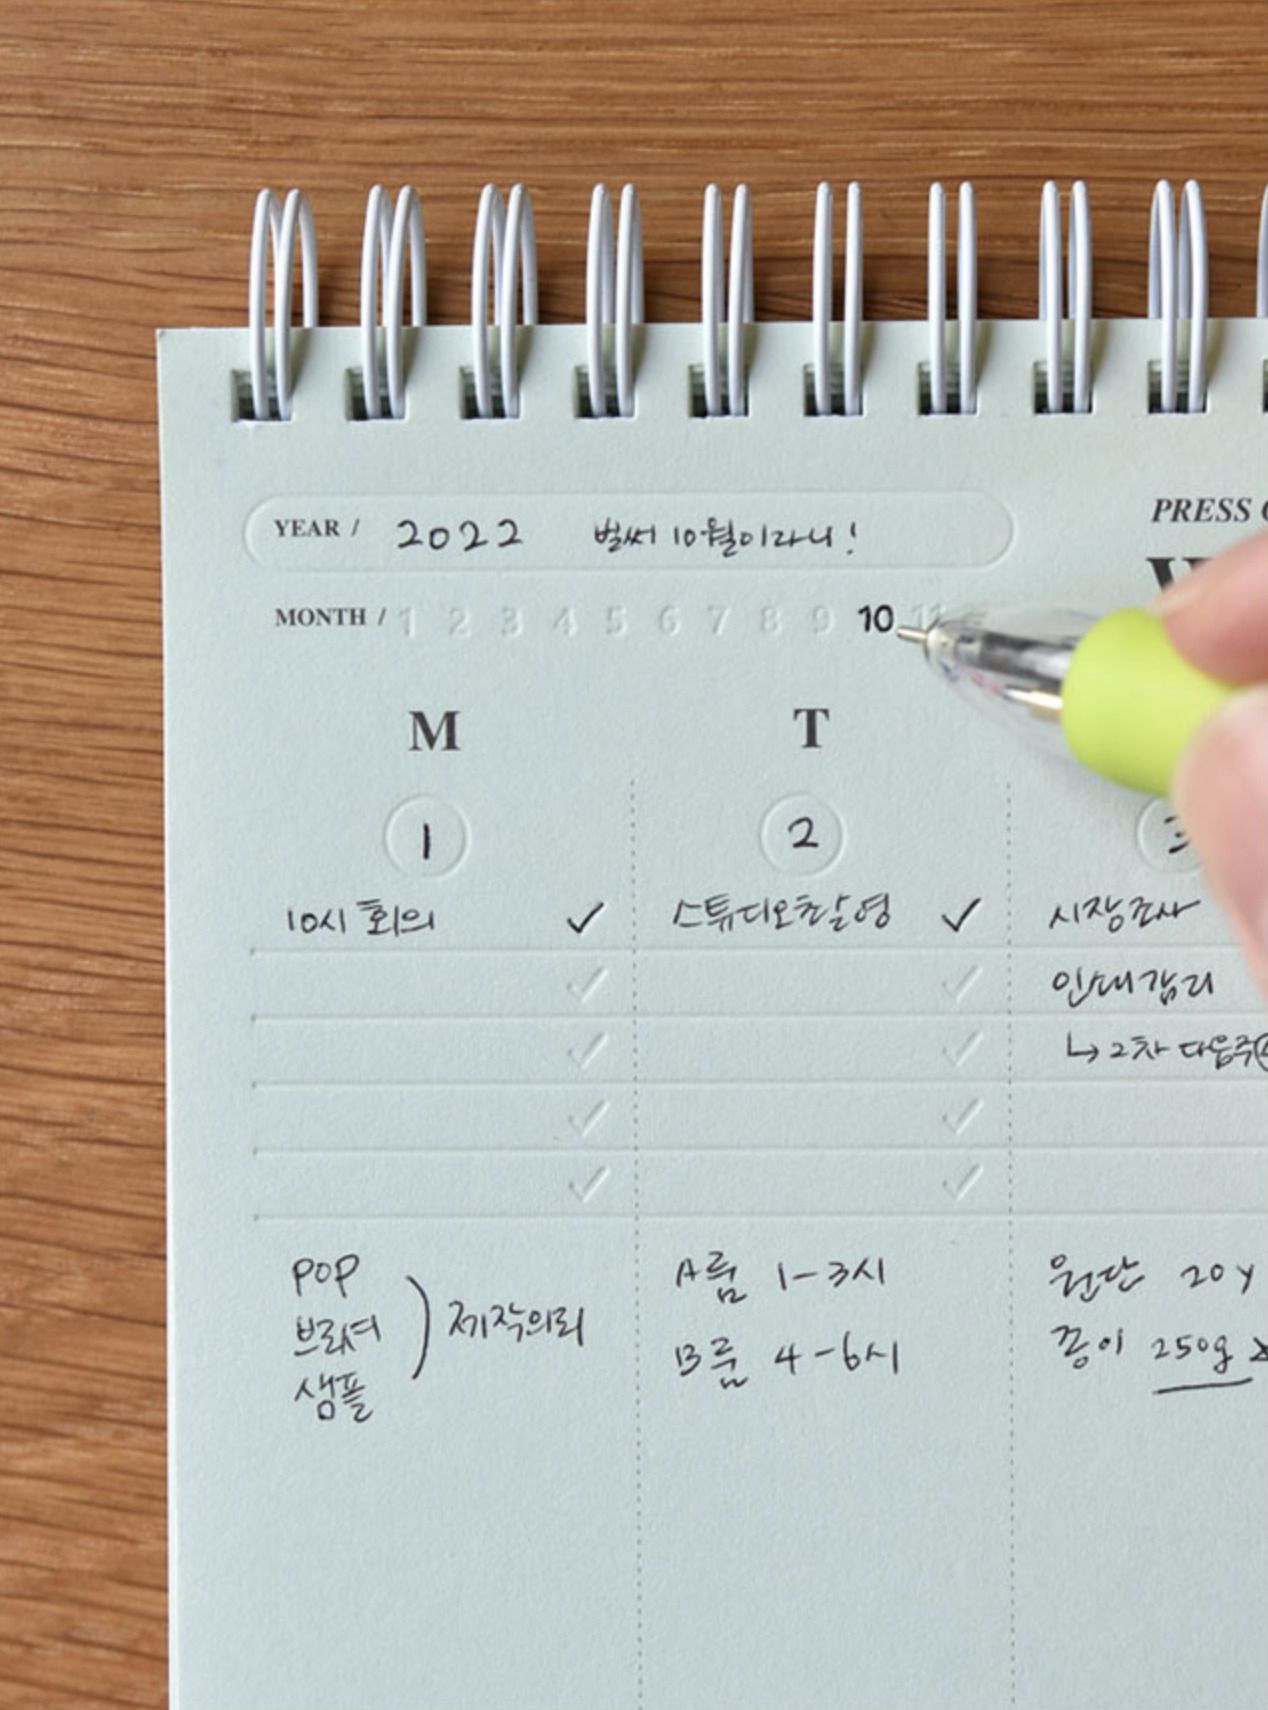 PRESS
YEAR / 2022 벌써 10월이라니!
MONTH / 1 2 3 4 5 6 7 8 9 10 11
M T
1 2 3
10시 회의 ✓ 스튜디오촬영 ✓ 시장조사
인쇄감리
↳ 2차 다음주
POP
브로셔
샘플
제작의뢰
A룸 1-3시
B룸 4-6시
원단 20y
종이 250g